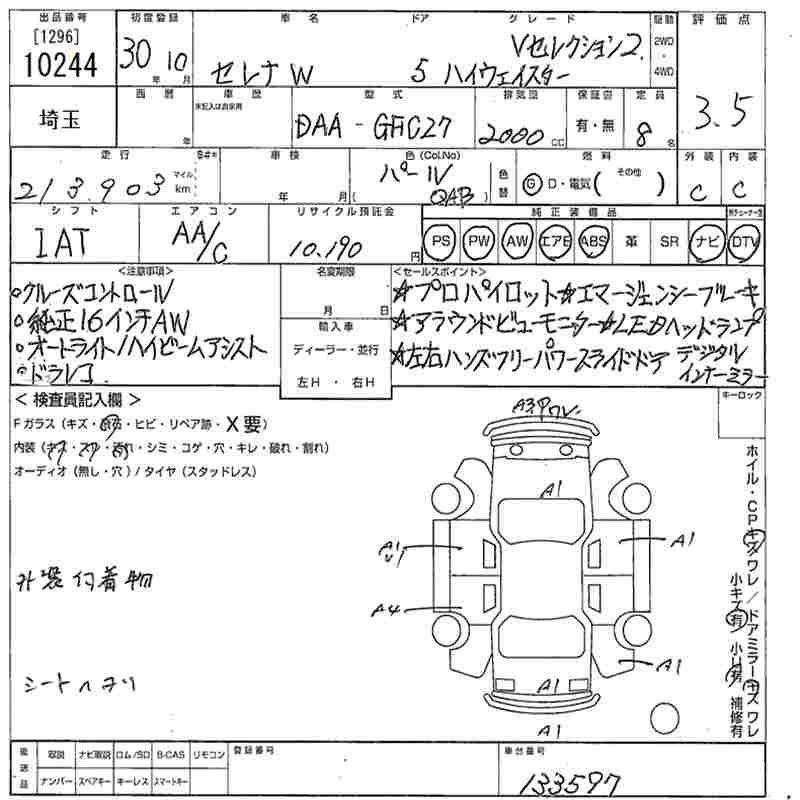 出品番号 初度登録 車名 ドア グレード 駆動 評価点
[1296]
10244 30年 10月 セレナW 5 Vセレクション2. ハイウェイスター 2WD・4WD 3.5
埼玉 西暦 年 車歴 未記入は自家用 型式 排気量 保証書 定員
DAA-GFC27 2000cc 有・無 8名
走行 S#* 車検 色(Col.No) 燃料 外装 内装
213.903 マイル km 年 月 パール (QAB) 色替 G D・電気(その他) C C
シフト エアコン リサイクル預託金 純正装備品
IAT AA/C 10.190円 PS PW AW エアB ABS 革 SR ナビ DTV
<注意事項> 名変期限 <セールスポイント>
○クルーズコントロール ☆プロパイロット☆エマージェンシーブレーキ
○純正16インチAW 月 日 ☆アラウンドビューモニター☆LEDヘッドランプ
○オートライト/ハイビームアシスト 輸入車 ☆左右ハンズフリーパワースライドドア デジタル
○ドラレコ. ディーラー・並行 インナーミラー
左H・右H
<検査員記入欄> キーロック
Fガラス(キズ・飛石・ヒビ・リペア跡・X要)
内装(キズ・スレ・汚れ・シミ・コゲ・穴・キレ・破れ・割れ)
オーディオ(無し・穴)/タイヤ(スタッドレス)
A3Pワレ
A1
A1
U1
A1
A4
A1
A1
A1
外装付着物
シートヘタリ
ホイル・CPキズワレ/ドアミラーキズワレ
小キズ有 小凹有 補修有
後送品 取説 ナビ取説 ロム/SD B-CAS リモコン 登録番号 車台番号
ナンバー スペアキー キーレス スマートキー 133597